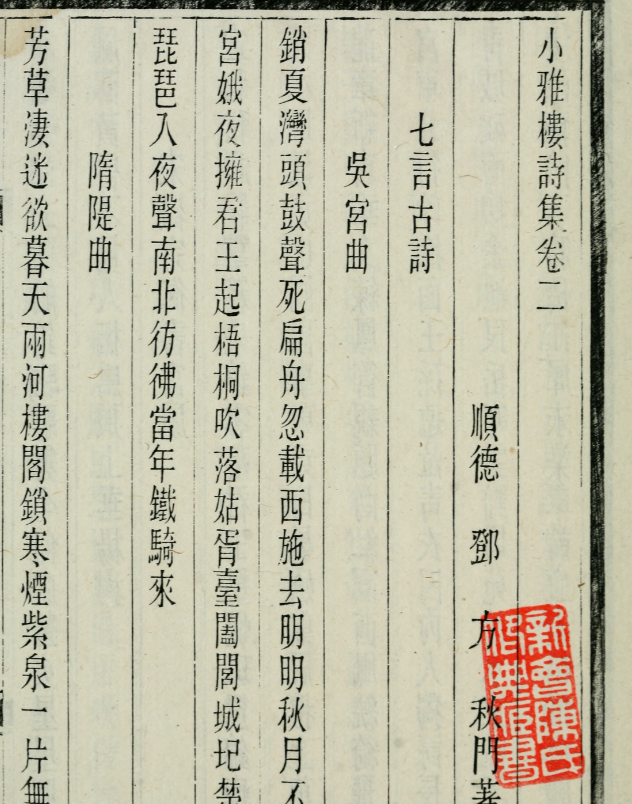 小雅樓詩集卷二
順德 鄧 方 秋門著
七言古詩
吳宮曲
銷夏灣頭鼓聲死扁舟忽載西施去明明秋月不
宮娥夜擁君王起梧桐吹落姑胥臺闔閭城圮楚
琵琶入夜聲南北彷彿當年鐵騎來
隋隄曲
芳草淒迷欲暮天兩河樓閣鎖寒煙紫泉一片無
新會陳氏